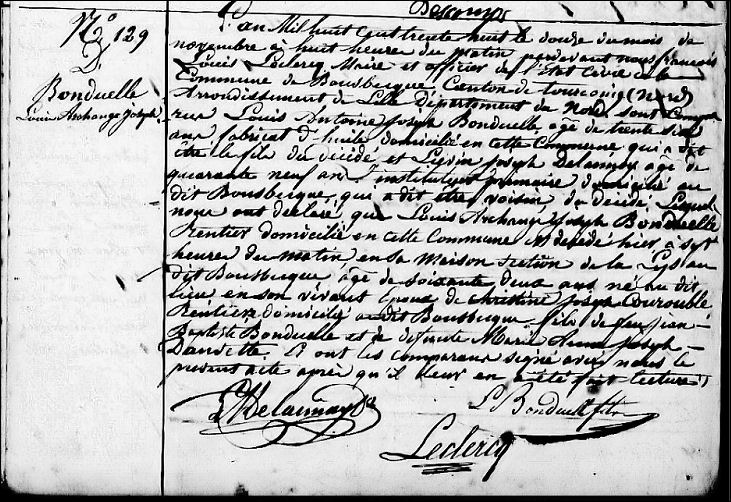 N.º 129
D.
Bonduelle
Louis Archange Joseph
L'an Mil huit cent trente huit le douze du mois de
novembre à huit heure du matin pardevant nous françois
Louis Leclercq Maire et officier de l'état Civil de la
Commune de Bousbecque Canton de Tourcoing (Nord)
Arrondissement de Lille Département du Nord. sont Compa
rus Louis Antoine Joseph Bonduelle âgé de trente six
ans fabricat d'huile domicilié en cette Commune qui a dit
être le fils du décédé et Lysin Joseph Delannoy âgé de
quarante neuf an instituteur primaire domicilié au
dit Bousbecque, qui a dit être voisin du décédé. Lesquels
nous ont déclaré que Louis Archange Joseph Bonduelle
Rentier domicilié en cette Commune est décédé hier à sept
heures du matin en sa maison section de la Lys au
dit Bousbecque âgé de soixante deux ans né au dit
lieu en son vivant époux de Christine Joseph Couroublé
Rentière domiciliée audit Bousbecque fils de feu jean
Baptiste Bonduelle et de défunte Marie Anne Joseph
Danvette. Et ont les comparans signé avec nous le
présent acte après qu'il leur en a été fait lecture
Delannoy
L Bonduelle fils
Leclercq